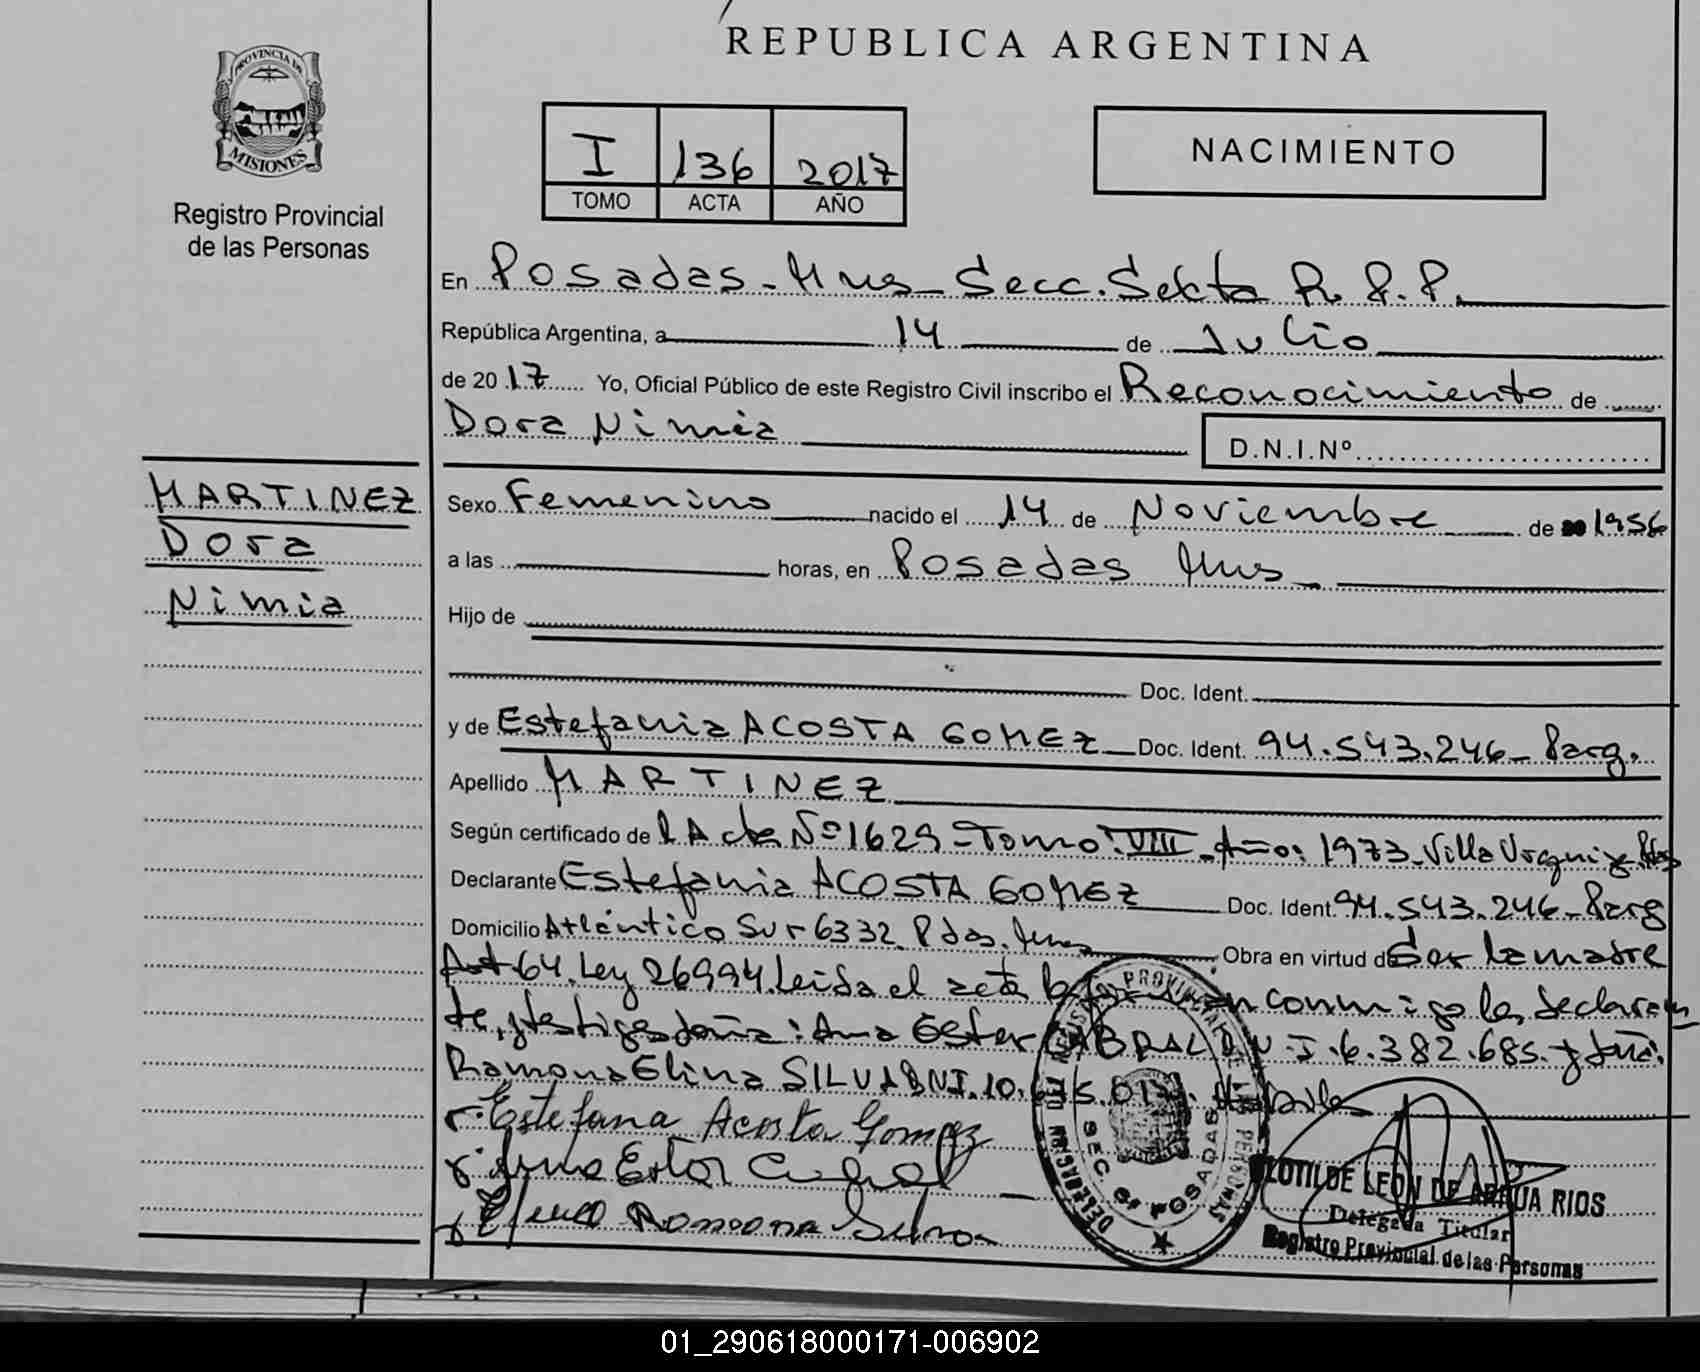 REPUBLICA ARGENTINA
PROVINCIA DE
MISIONES
Registro Provincial
de las Personas
I 136 2017
TOMO ACTA AÑO
NACIMIENTO
En Posadas - Mnes - Secc. Sexta R. P. P.
República Argentina, a 14 de Julio
de 20 17 Yo, Oficial Público de este Registro Civil inscribo el Reconocimiento de
Dora Nimia D.N.I.Nº
MARTINEZ
Dora
Nimia
Sexo Femenino nacido el 14 de Noviembre de 1956
a las horas, en Posadas Mnes
Hijo de
Doc. Ident.
y de Estefania ACOSTA GOMEZ Doc. Ident. 94.543.246 - Parg.
Apellido MARTINEZ
Según certificado de Acta Nº 1629 - Tomo: VIII - Año: 1973 - Villa Urquiza Pdas
Declarante Estefania ACOSTA GOMEZ Doc. Ident. 94.543.246 - Parg
Domicilio Atlántico Sur 6332 Pdas. Mnes Obra en virtud de Ser la madre
Art 64. Ley 26994. Leida el acta conmigo la declaran
te, y testigos doña: Ana Ester CABRAL DNI. 6.382.685. y doña.
Ramona Elina SILVA DNI. 10.
Estefana Acosta Gomez
Ana Ester Cabral
Ramona Silva
REGISTRO PROVINCIAL DE LAS PERSONAS
DELEGACION
SEC. 6ª POSADAS
CLOTILDE LEON DE ARAUA RIOS
Delegada Titular
Registro Provincial de las Personas
01_290618000171-006902